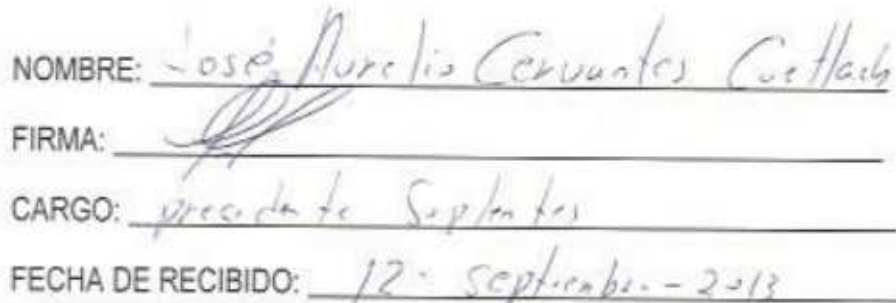 NOMBRE: José Aurelio Cervantes
FIRMA:
CARGO: precidente Suplentes
FECHA DE RECIBIDO: 12- septiembre - 2013